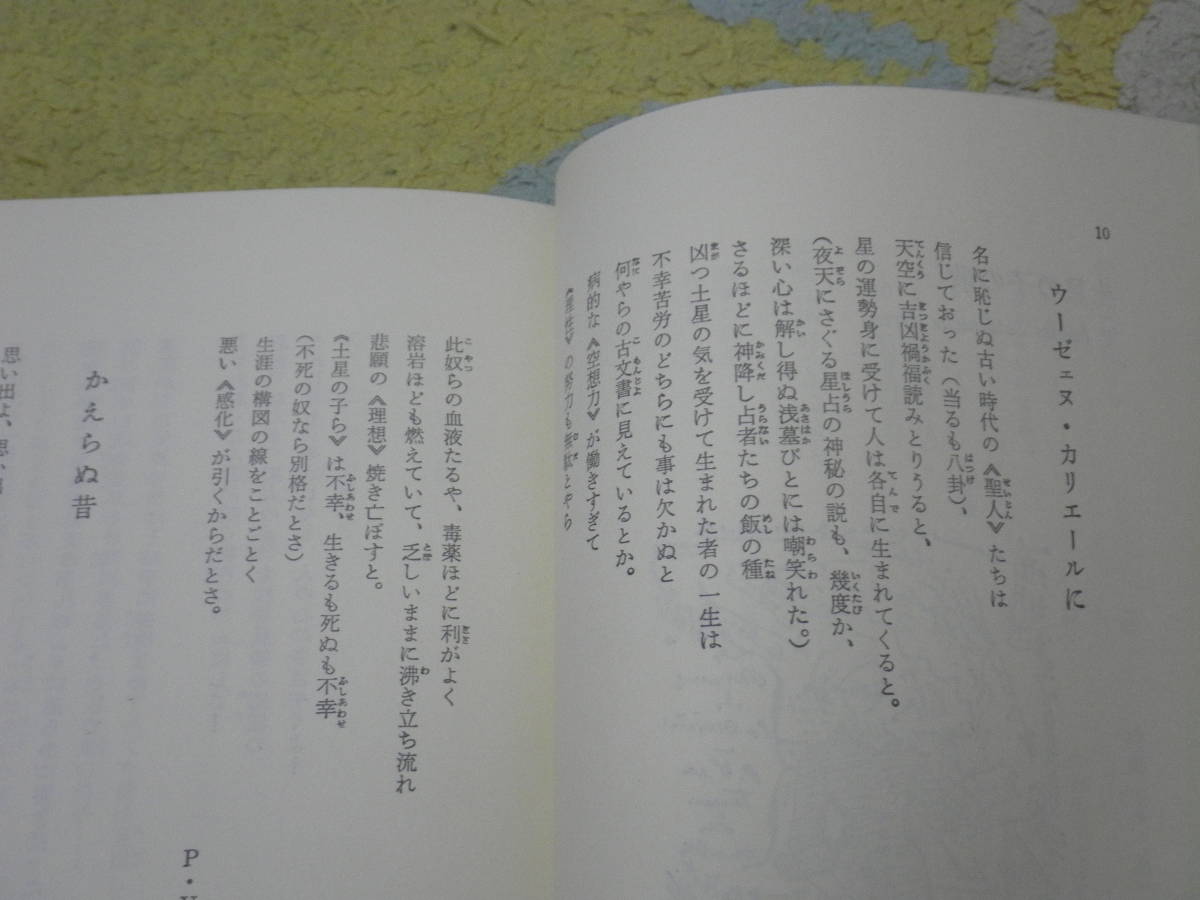 10
ウーゼェヌ・カリエールに
名に恥じぬ古い時代の《聖人》たちは
信じておった(当るも八卦)、
天空に吉凶禍福読みとりうると、
星の運勢身に受けて人は各自に生まれてくると。
(夜天にさぐる星占の神秘の説も、幾度か、
深い心は解し得ぬ浅墓びとには嘲笑れた。)
さるほどに神降し占者たちの飯の種
凶つ土星の気を受けて生まれた者の一生は
不幸苦労のどちらにも事は欠かぬと
何やらの古文書に見えているとか。
病的な《空想力》が働きすぎて
《理性》の努力も無駄とやら
此奴らの血液たるや、毒薬ほどに利がよく
溶岩ほども燃えていて、乏しいままに沸き立ち流れ
悲願の《理想》焼き亡ぼすと。
《土星の子ら》は不幸、生きるも死ぬも不幸
(不死の奴なら別格だとさ)
生涯の構図の線をことごとく
悪い《感化》が引くからだとさ。
P・V
かえらぬ昔
思い出よ、思い出